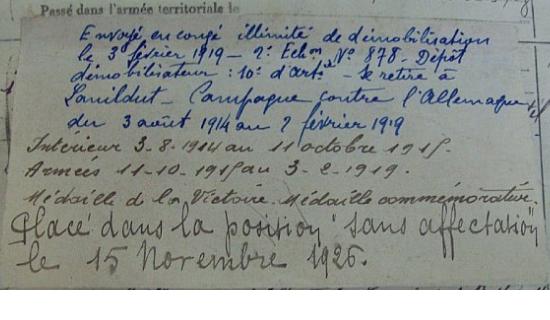 Passé dans l'armée territoriale le
Envoyé en congé illimité de démobilisation
le 3 février 1919 - 2e Echon No 878 - Dépôt
démobilisateur : 10e d'artie - Se retire à
Lanildut - Campagne contre l'Allemagne
du 3 août 1914 au 2 février 1919
Intérieur 3-8-1914 au 11 octobre 1915.
Armées 11-10-1915 au 3-2-1919.
Médaille de la Victoire. Médaille commémorative.
Placé dans la position "sans affectation"
le 15 Novembre 1926.